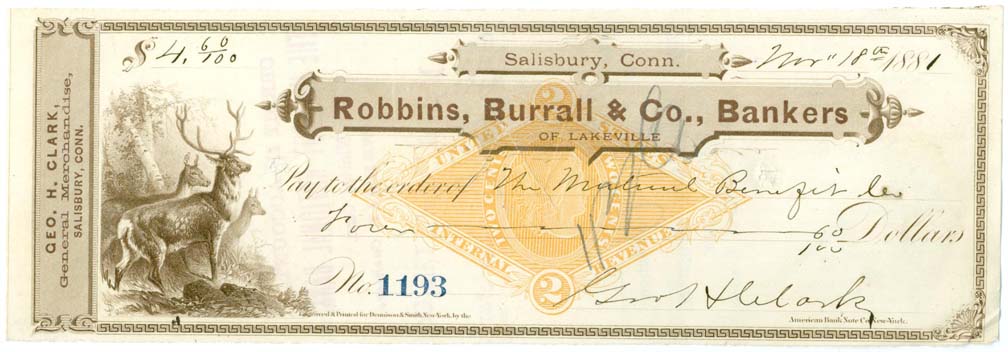 GEO. H. CLARK,
General Merchandise,
SALISBURY, CONN.
$ 4, 60/100
Salisbury, Conn.
Nov 18th 1881
Robbins, Burrall & Co., Bankers
OF LAKEVILLE
Pay to the order of The Mutual Benefit Co
Four 60/100 Dollars
UNITED STATES
TWO CENTS
INTERNAL REVENUE
2
2
No. 1193
Geo H Clark
& Printed for Dennison & Smith, New-York, by the
American Bank Note Co. New-York.